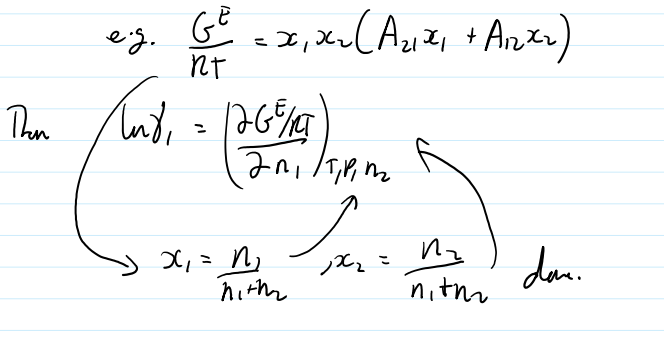 e.g. G^E/RT = x₁x₂(A₂₁x₁ + A₁₂x₂)
Then lnγ₁ = (∂G^E/RT / ∂n₁)T,P,n₂
x₁ = n₁/(n₁+n₂) , x₂ = n₂/(n₁+n₂) done.